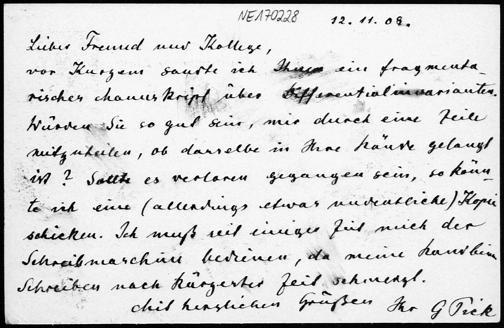 NE170228
12. 11. 08.
Lieber Freund und Kollege,
vor Kurzem sandte ich Ihnen ein fragmenta-
risches Manuskript über Differentialinvarianten.
Würden Sie so gut sein, mir durch eine Zeile
mitzuteilen, ob dasselbe in Ihre Hände gelangt
ist? Sollte es verloren gegangen sein, so könn-
te ich eine (allerdings etwas undeutliche) Kopie
schicken. Ich muß seit einiger Zeit mich der
Schreibmaschine bedienen, da meine Hand beim
Schreiben nach kürzester Zeit schmerzt.
Mit herzlichen Grüßen Ihr G Pick